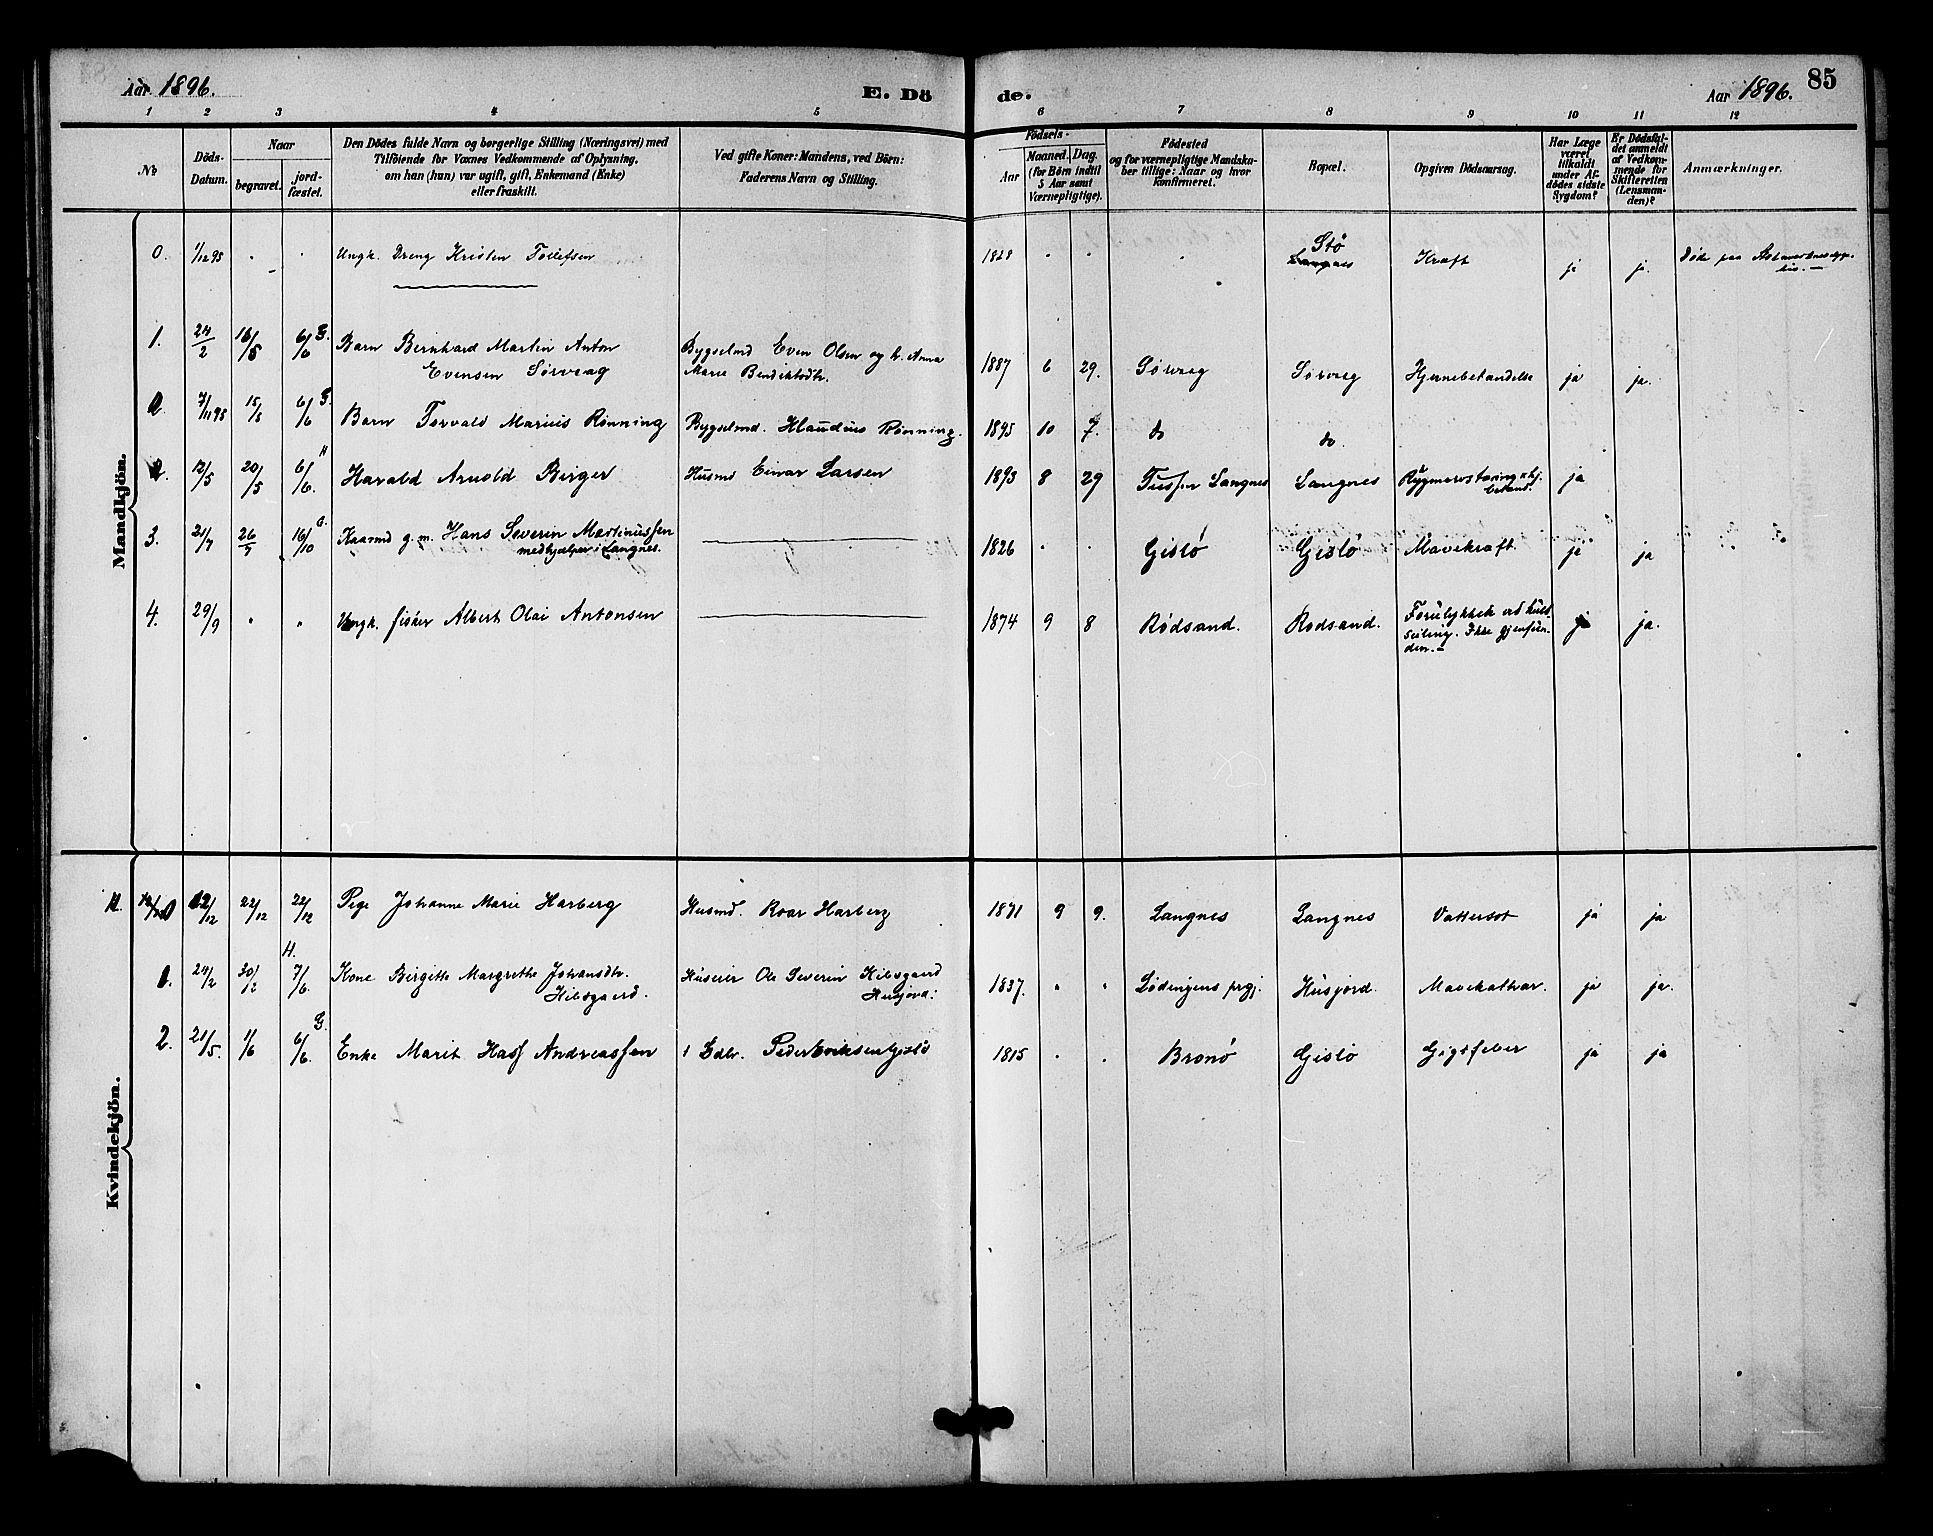 Aar 1896.
E. Dö
de.
Aar 1896.
85
1 2 3 4 5 6 7 8 9 10 11 12
No
Döds-
Datum.
Naar
begravet.
jord-
fæstet.
Den Dödes fulde Navn og borgerlige Stilling (Næringsvei) med
Tilföiende for Voxnes Vedkommende af Oplysning,
om han (hun) var ugift, gift, Enkemand (Enke)
eller fraskilt.
Ved gifte Koner: Mandens, ved Börn:
Faderens Navn og Stilling.
Födsels-
Aar
Maaned.
Dag.
(for Börn indtil
5 Aar samt
Værnepligtige).
Födested
og for værnepligtige Mandska-
ber tillige: Naar og hvor
konfirmeret.
Bopæl.
Opgiven Dödsaarsag.
Har Læge
været
tilkaldt
under Af-
dödes sidste
Sygdom?
Er Dödsfal-
det anmeldt
af Vedkom-
mende for
Skifteretten
(Lensman-
den)?
Anmærkninger.
Mandkjön.
0. 1/12 95 Ungk. Dreng Kristen Tollefsen 1828 Stö
Langnes Kræft ja ja. Döde paa
1. 24/2 16/5 6/6 G. Barn Bernhard Martin Anton
Evensen Sørvaag
Bygselmd Even Olsen og h. Anna
Marie Bendiktsdtr.
1887 6 29. Sørvaag Sørvaag Hjernebetændelse ja ja.
7/11 95 15/5 6/6 G. Barn Torvald Marius Rønning Bygselmd. Klaudius Rønning. 1895 10 7. do do.
2. 12/5 20/5 6/6. H Harald Arnold Birger Husmd Einar Larsen 1893 8 29 Langnes Langnes ja
3. 21/7 26/7 16/10 G. Kaarmd g.m. Hans Severin Martinussen
medhjælper i Langnes.
1826 Gislö Gislö Mavekræft ja ja
4. 29/9 Ungk. fisker Albert Olai Antonsen 1874 9 8 Rödsand. Rodsand. Forulykket ved kuld-
seiling. Ikke gjenfun-
den.- ja ja.
Kvindekjön.
0 12/12 22/12 22/12 Pige Johanne Marie Harberg Husmd. Roar Harberg 1871 9 9. Langnes Langnes Vattersot ja ja
1. 24/2 30/2 7/6. H. Kone Birgitte Margrethe Johansdtr.
Hilsgaard.
Huseier Ole Severin Hilsgaard
Husjord.
1837. Lödingens prgj. Husjord. Mavekathar. ja ja.
2. 21/5. 1/6 6/6. G. Enke Marit Hass Andreassen Peder Eriksen Gislö 1815 Bronö Gislö Gigtfeber ja ja